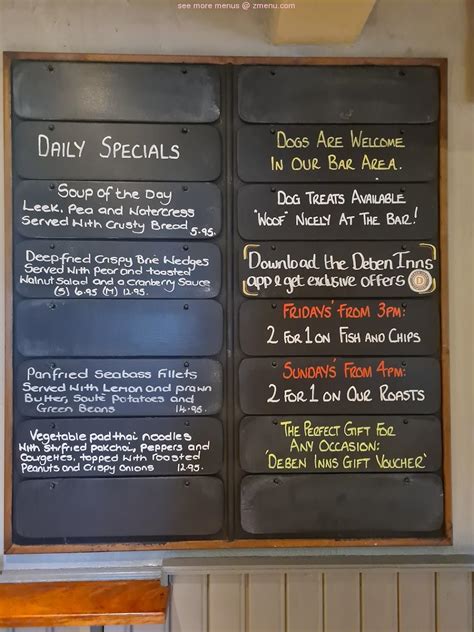 see more menus @ zmenu.com
DAILY SPECIALS
SOUP OF THE DAY
LEEK, PEA AND WATERCRESS
SERVED WITH CRUSTY BREAD 5.95
DEEPFRIED CRISPY BRIE WEDGES
SERVED WITH PEAR AND TOASTED
WALNUT SALAD AND A CRANBERRY SAUCE
(S) 6.95 (M) 12.95.
PANFRIED SEABASS FILLETS
SERVED WITH LEMON AND PRAWN
BUTTER, SAUTÉ POTATOES AND
GREEN BEANS 14.95
VEGETABLE PADTHAI NOODLES
WITH STIRFRIED PAKCHOI, PEPPERS AND
COURGETTES, TOPPED WITH ROASTED
PEANUTS AND CRISPY ONIONS 12.95.
DOGS ARE WELCOME
IN OUR BAR AREA.
DOG TREATS AVAILABLE
"WOOF" NICELY AT THE BAR!
Download the Deben Inns
app & get exclusive offers
FRIDAYS' FROM 3PM:
2 FOR 1 ON FISH AND CHIPS
SUNDAYS' FROM 4PM:
2 FOR 1 ON OUR ROASTS
THE PERFECT GIFT FOR
ANY OCCASION:
'DEBEN INNS GIFT VOUCHER'